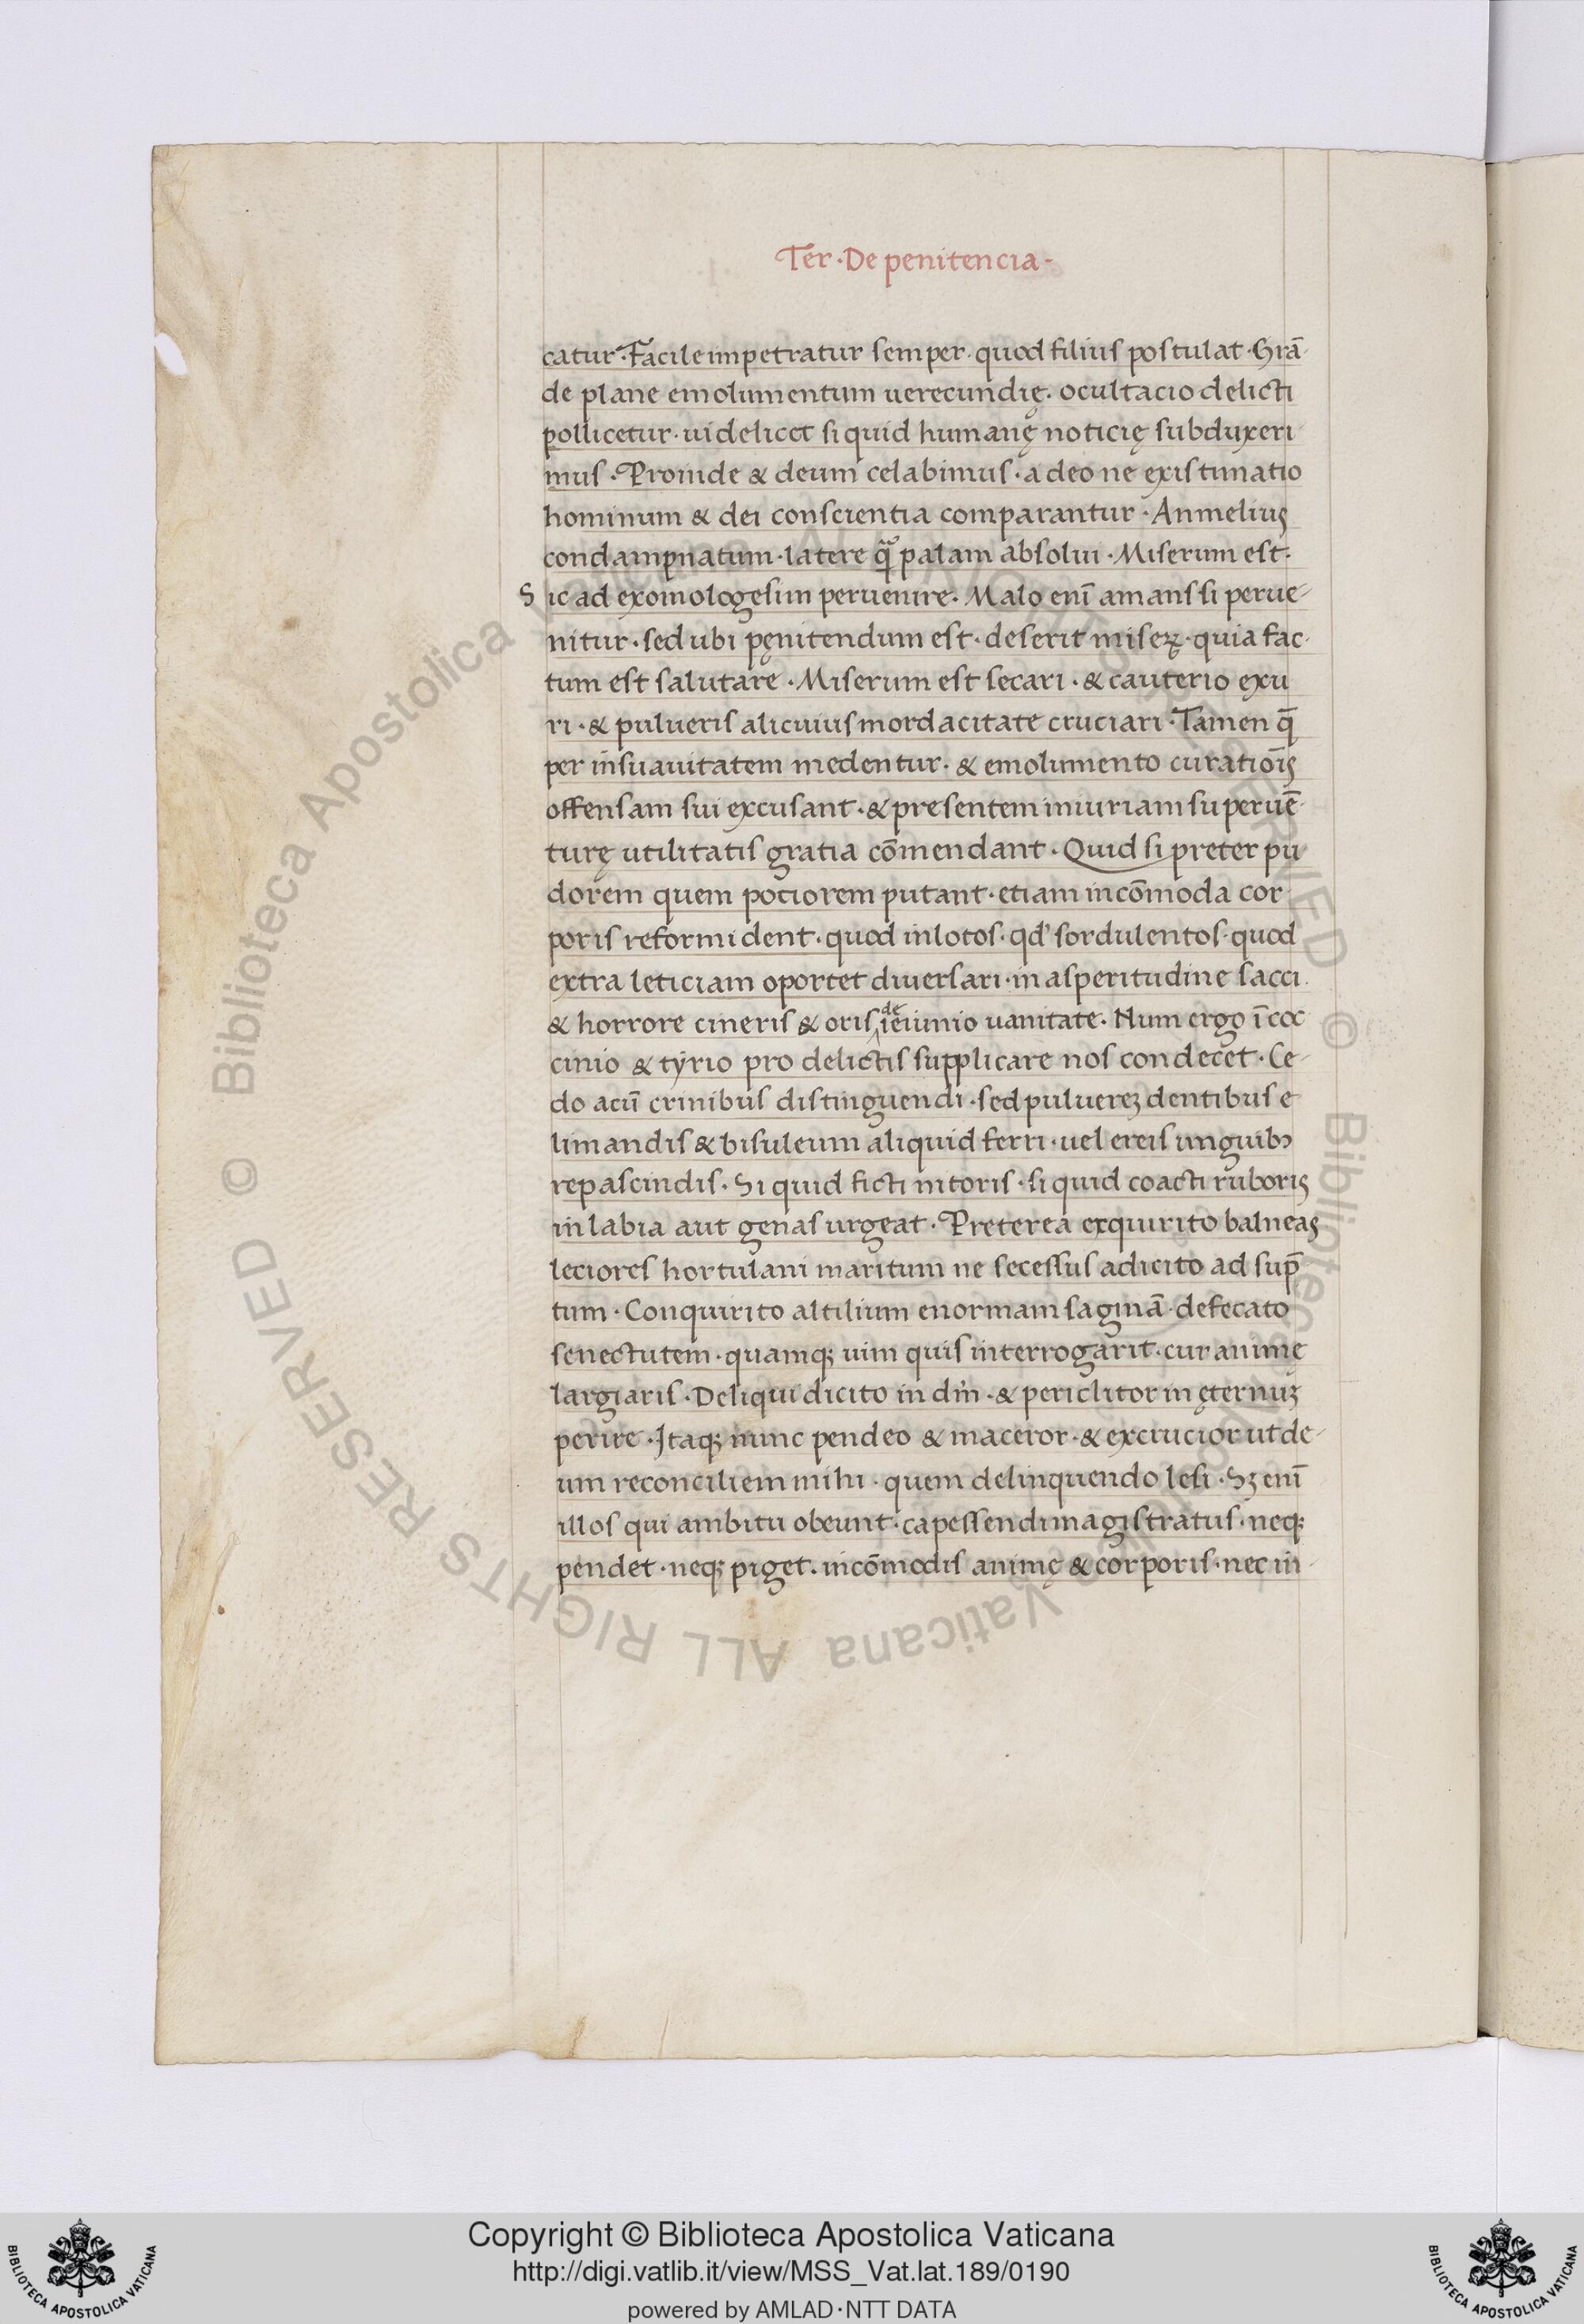 Ter·De penitencia-
catur·Facile impetratur semper·quod filius postulat·Grā-
de plane emolumentum uerecundię·ocultacio delicti
pollicetur·uidelicet si quid humanę noticię subduxeri
mus·Proinde & deum celabimus·adeo ne existimatio
hominum & dei conscientia comparantur·An melius
condampnatum·latere quā palam absolui·Miserum est·
Sic ad exomologesim peruenire·Malo enī amans si perue-
nitur·sed ubi pęnitendum est·deserit miseꝝ·quia fac-
tum est salutare·Miserum est secari·& cauterio exu
ri·& pulueris alicuius mordacitate cruciari·Tamen q̄
per insuauitatem medentur·& emolumento curatiōis
offensam sui excusant·& presentem iniuriam superuē-
turę utilitatis gratia cōmendant·Quid si preter pu
dorem quem pociorem putant·etiam incōmoda cor-
poris reformident·quod inlotos·qd' sordulentos·quod
extra leticiam oportet diuersari·in asperitudine sacci·
& horrore cineris & oris de ieiunio uanitate·Num ergo ī coc
cinio & tyrio pro delictis supplicare nos condecet·Ce-
do acū crinibus distinguendi·sed puluereʒ dentibus e
limandis & bisuleum aliquid ferri·uel ereis unguibꝫ
repascindis·Si quid ficti nitoris·si quid coacti ruboris
in labia aut genas urgeat·Preterea exquirito balneas
leciores hortulani maritum ne secessus adicito ad sup̄
tum·Conquirito altilium enormam saginā·defecato
senectutem·quamqꝫ uim quis interrogarit·cur animę
largiaris·Deliqui dicito in dm̄·& periclitor in ęternuʒ
perire·Itaqꝫ nunc pendeo & maceror·& excrucior ut de-
um reconciliem mihi·quem delinquendo lesi·Sʒ enī
illos qui ambitu obeunt·capessendi magistratus·neqꝫ
pendet·neqꝫ piget·incōmodis animę & corporis·nec in-
© Biblioteca Apostolica Vaticana ALL RIGHTS RESERVED © Biblioteca Apostolica Vaticana ALL RIGHTS RESERVED
Copyright © Biblioteca Apostolica Vaticana
http://digi.vatlib.it/view/MSS_Vat.lat.189/0190
powered by AMLAD·NTT DATA
BIBLIOTECA APOSTOLICA VATICANA
BIBLIOTECA APOSTOLICA VATICANA